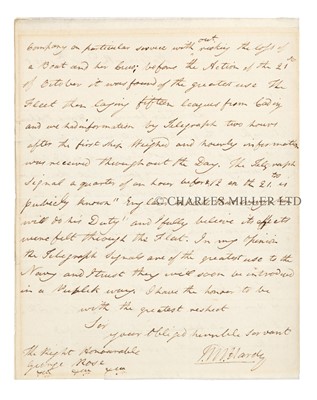 Company on particular service without risking the loss of
a Boat and her Crew; before the Action of the 21st
of October it was found of the greatest use The
Fleet then laying fifteen leagues from Cadiz
and we had information by Telegraph two hours
after the first Ship Weighed and hourly information
was received throughout the Day. The Telegraph
Signal a quarter of an hour before 12 on the 21st is
publicly known "England
will do his Duty" and I fully believe its effects
were felt through the Fleet. In my opinion
the Telegraph Signals are of the greatest use to the
Navy and I trust they will soon be introduced
in a Publick way. I have the honour to be
with the greatest respect
Sir
your Obliged humble Servant
The Right Honourable
George Rose
T M Hardy
© CHARLES MILLER LTD